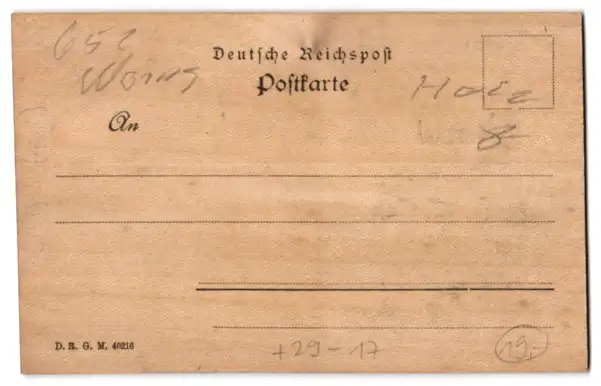 652
Worms
Deutsche Reichspost
Postkarte
Holz
An
D. R. G. M. 40216
+29-17
19,-